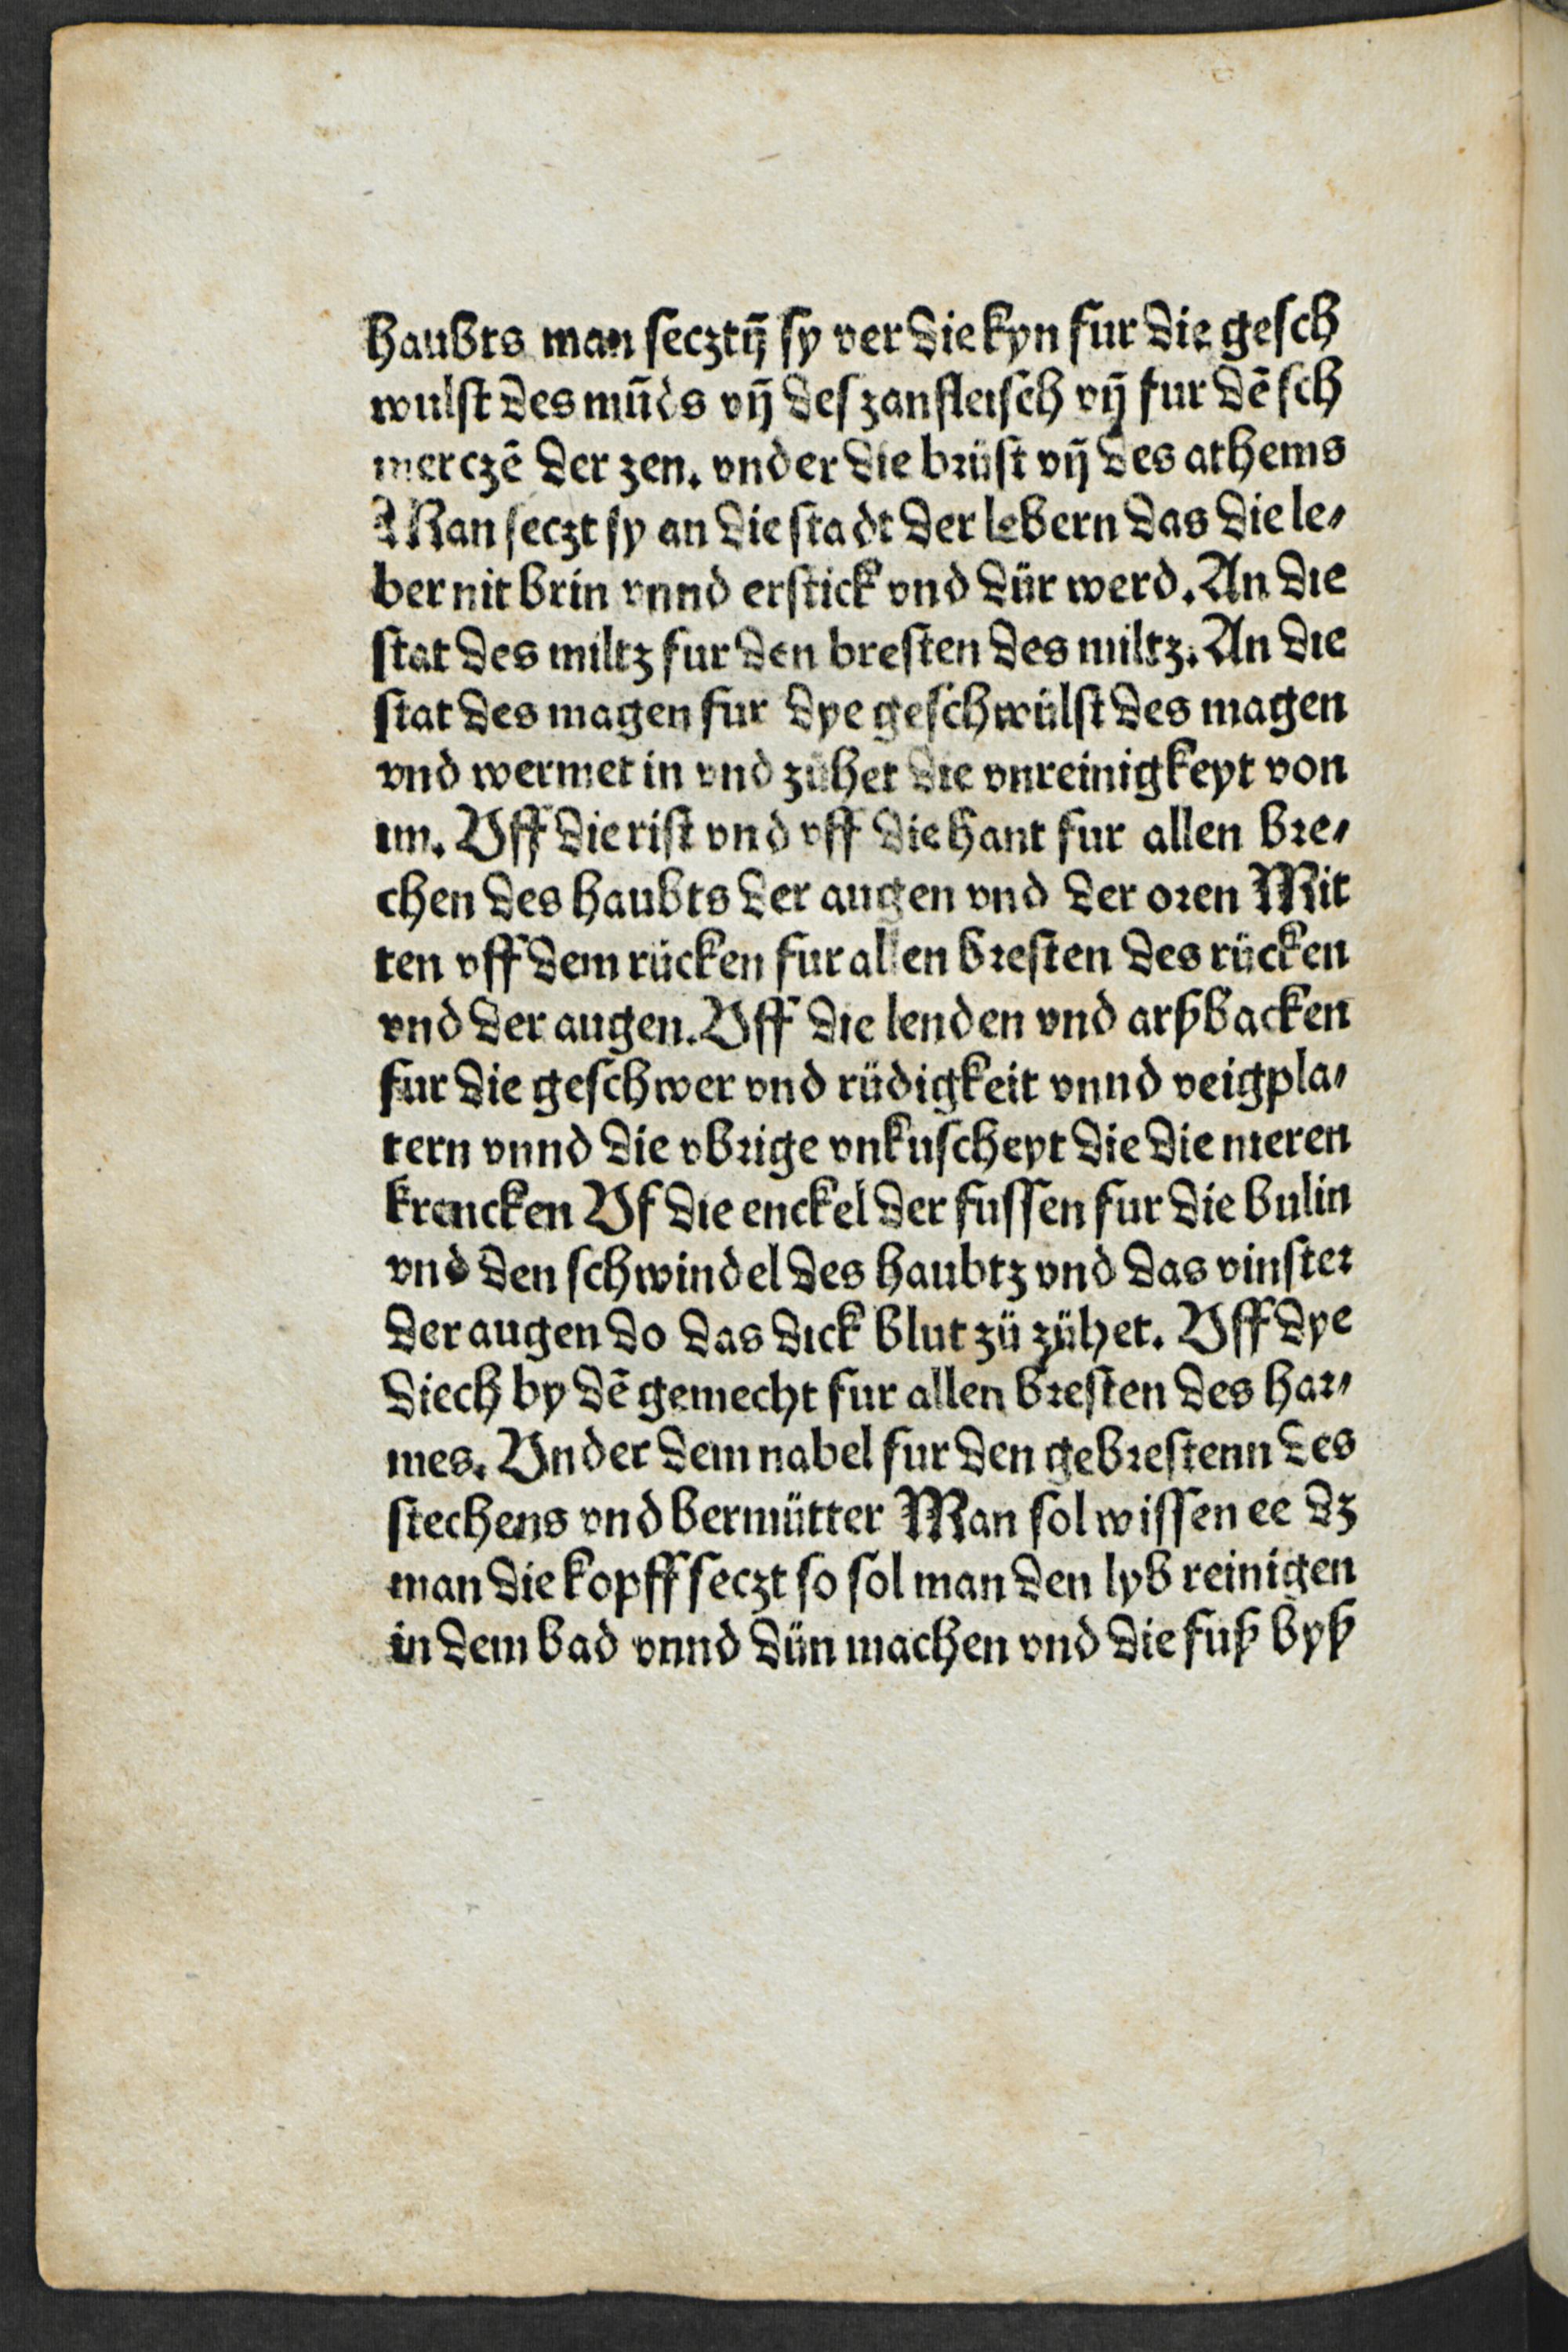 haubts man secztn̄ sy ver die kyn fur die gesch
wulst des mūds vn̄ des zanfleisch vn̄ fur dē sch
merczē der zen. vnder die brüst vn̄ des athems
Man seczt sy an die stadt der lebern das die le⸗
ber nit brin vnnd erstick vnd dür werd. An die
stat des miltz fur den bresten des miltz. An die
stat des magen fur dye geschwülst des magen
vnd wermet in vnd zühet die vnreinigkeyt von
im. Vff die rist vnd vff die hant fur allen bre⸗
chen des haubts der augen vnd der oren Mit
ten vff dem rücken fur allen bresten des rücken
vnd der augen. Vff die lenden vnd arßbacken
fur die geschwer vnd rüdigkeit vnnd veigpla⸗
tern vnnd die vbrige vnkuscheyt die die nieren
krencken Vf die enckel der fussen fur die bulin
vnd den schwindel des haubtz vnd das vinster
der augen do das dick blut zü zühet. Vff dye
diech by dē gemecht fur allen bresten des har⸗
mes. Vnder dem nabel fur den gebrestenn des
stechens vnd bermütter Man sol wissen ee dz
man die kopff seczt so sol man den lyb reinigen
in dem bad vnnd dün machen vnd die fuß byß